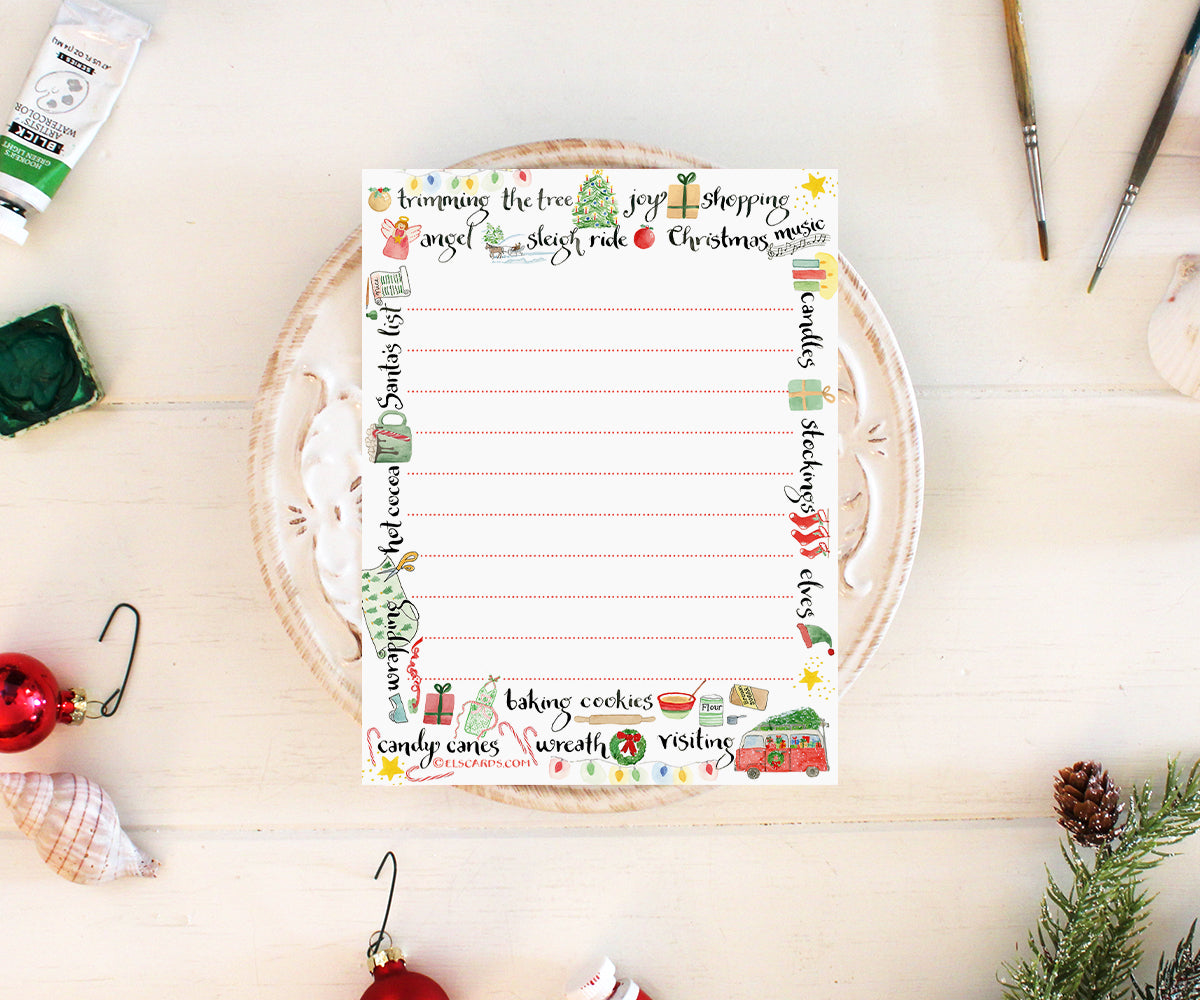 .47 US FL OZ (14 ML)
SERIES 1
ARTISTS'
WATERCOLOR
BLICK
HOOKER'S
GREEN LIGHT
trimming the tree joy shopping
angel sleigh ride Christmas music
Santa's list
hot cocoa
wrapping
candles
stockings
elves
baking cookies
Flour
candy canes wreath visiting
©ELSCARDS.COM